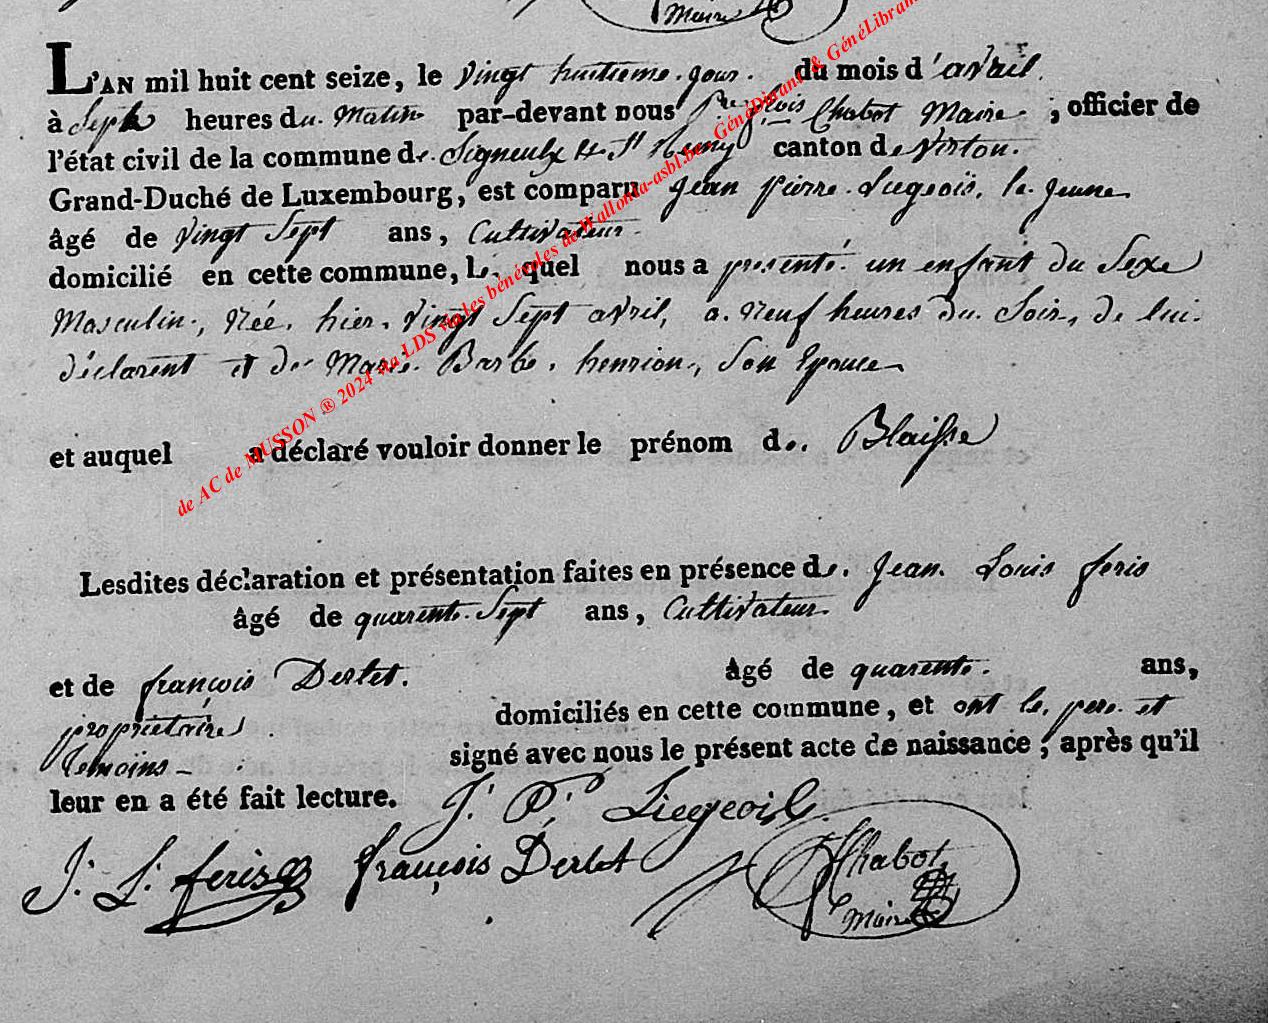 Maire
L'AN mil huit cent seize, le vingt huitieme jour du mois d'avril
à Sept heures du Matin par-devant nous Chabot Maire ; officier de
l'état civil de la commune de Signeulx et St Remy canton de Virton.
Grand-Duché de Luxembourg, est comparu Jean pierre Liegeois, le Jeune
âgé de vingt Sept ans, Cultivateur
domicilié en cette commune, Le quel nous a presenté un enfant du Sexe
Masculin, Née, hier, vingt Sept avril, a Neuf heures du Soir, de lui
déclarent et de Marie Barbe henrion, Son Epouce
et auquel a déclaré vouloir donner le prénom de Blaisse
Lesdites déclaration et présentation faites en présence de Jean Louis feris
âgé de quarente Sept ans, Cultivateur
et de françois Derlet. âgé de quarente ans,
propriétaire domiciliés en cette commune, et ont le pere et
temoins signé avec nous le présent acte de naissance, après qu'il
leur en a été fait lecture. J. P. Liegeois
J. L. feris françois Derlet Chabot
Maire
de AC de MUSSON ® 2024 via LDS via les bénévoles de Wallonia-asbl.be - GénéDinant & GénéLibram